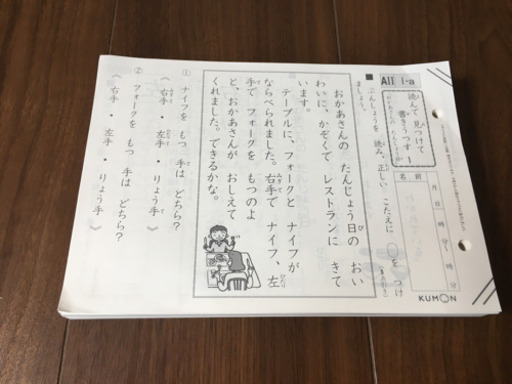 AⅡ 1-a
読んで 見つけて
書きうつす 1
名前
月 日 時 分
時 分
■ ぶんしょうを 読み、正しい こたえに ○を つけ
ましょう。
おかあさんの たんじょう日の おい
わいに、かぞくで レストランに きて
います。
テーブルに、フォークと ナイフが
ならべられました。右手で ナイフ、左
手で フォークを もつのよ
と、おかあさんが おしえて
くれました。できるかな。
① ナイフを もつ 手は どちら?
《 右手 ・ 左手 ・ りょう手 》
② フォークを もつ 手は どちら?
《 右手 ・ 左手 ・ りょう手 》
KUMON